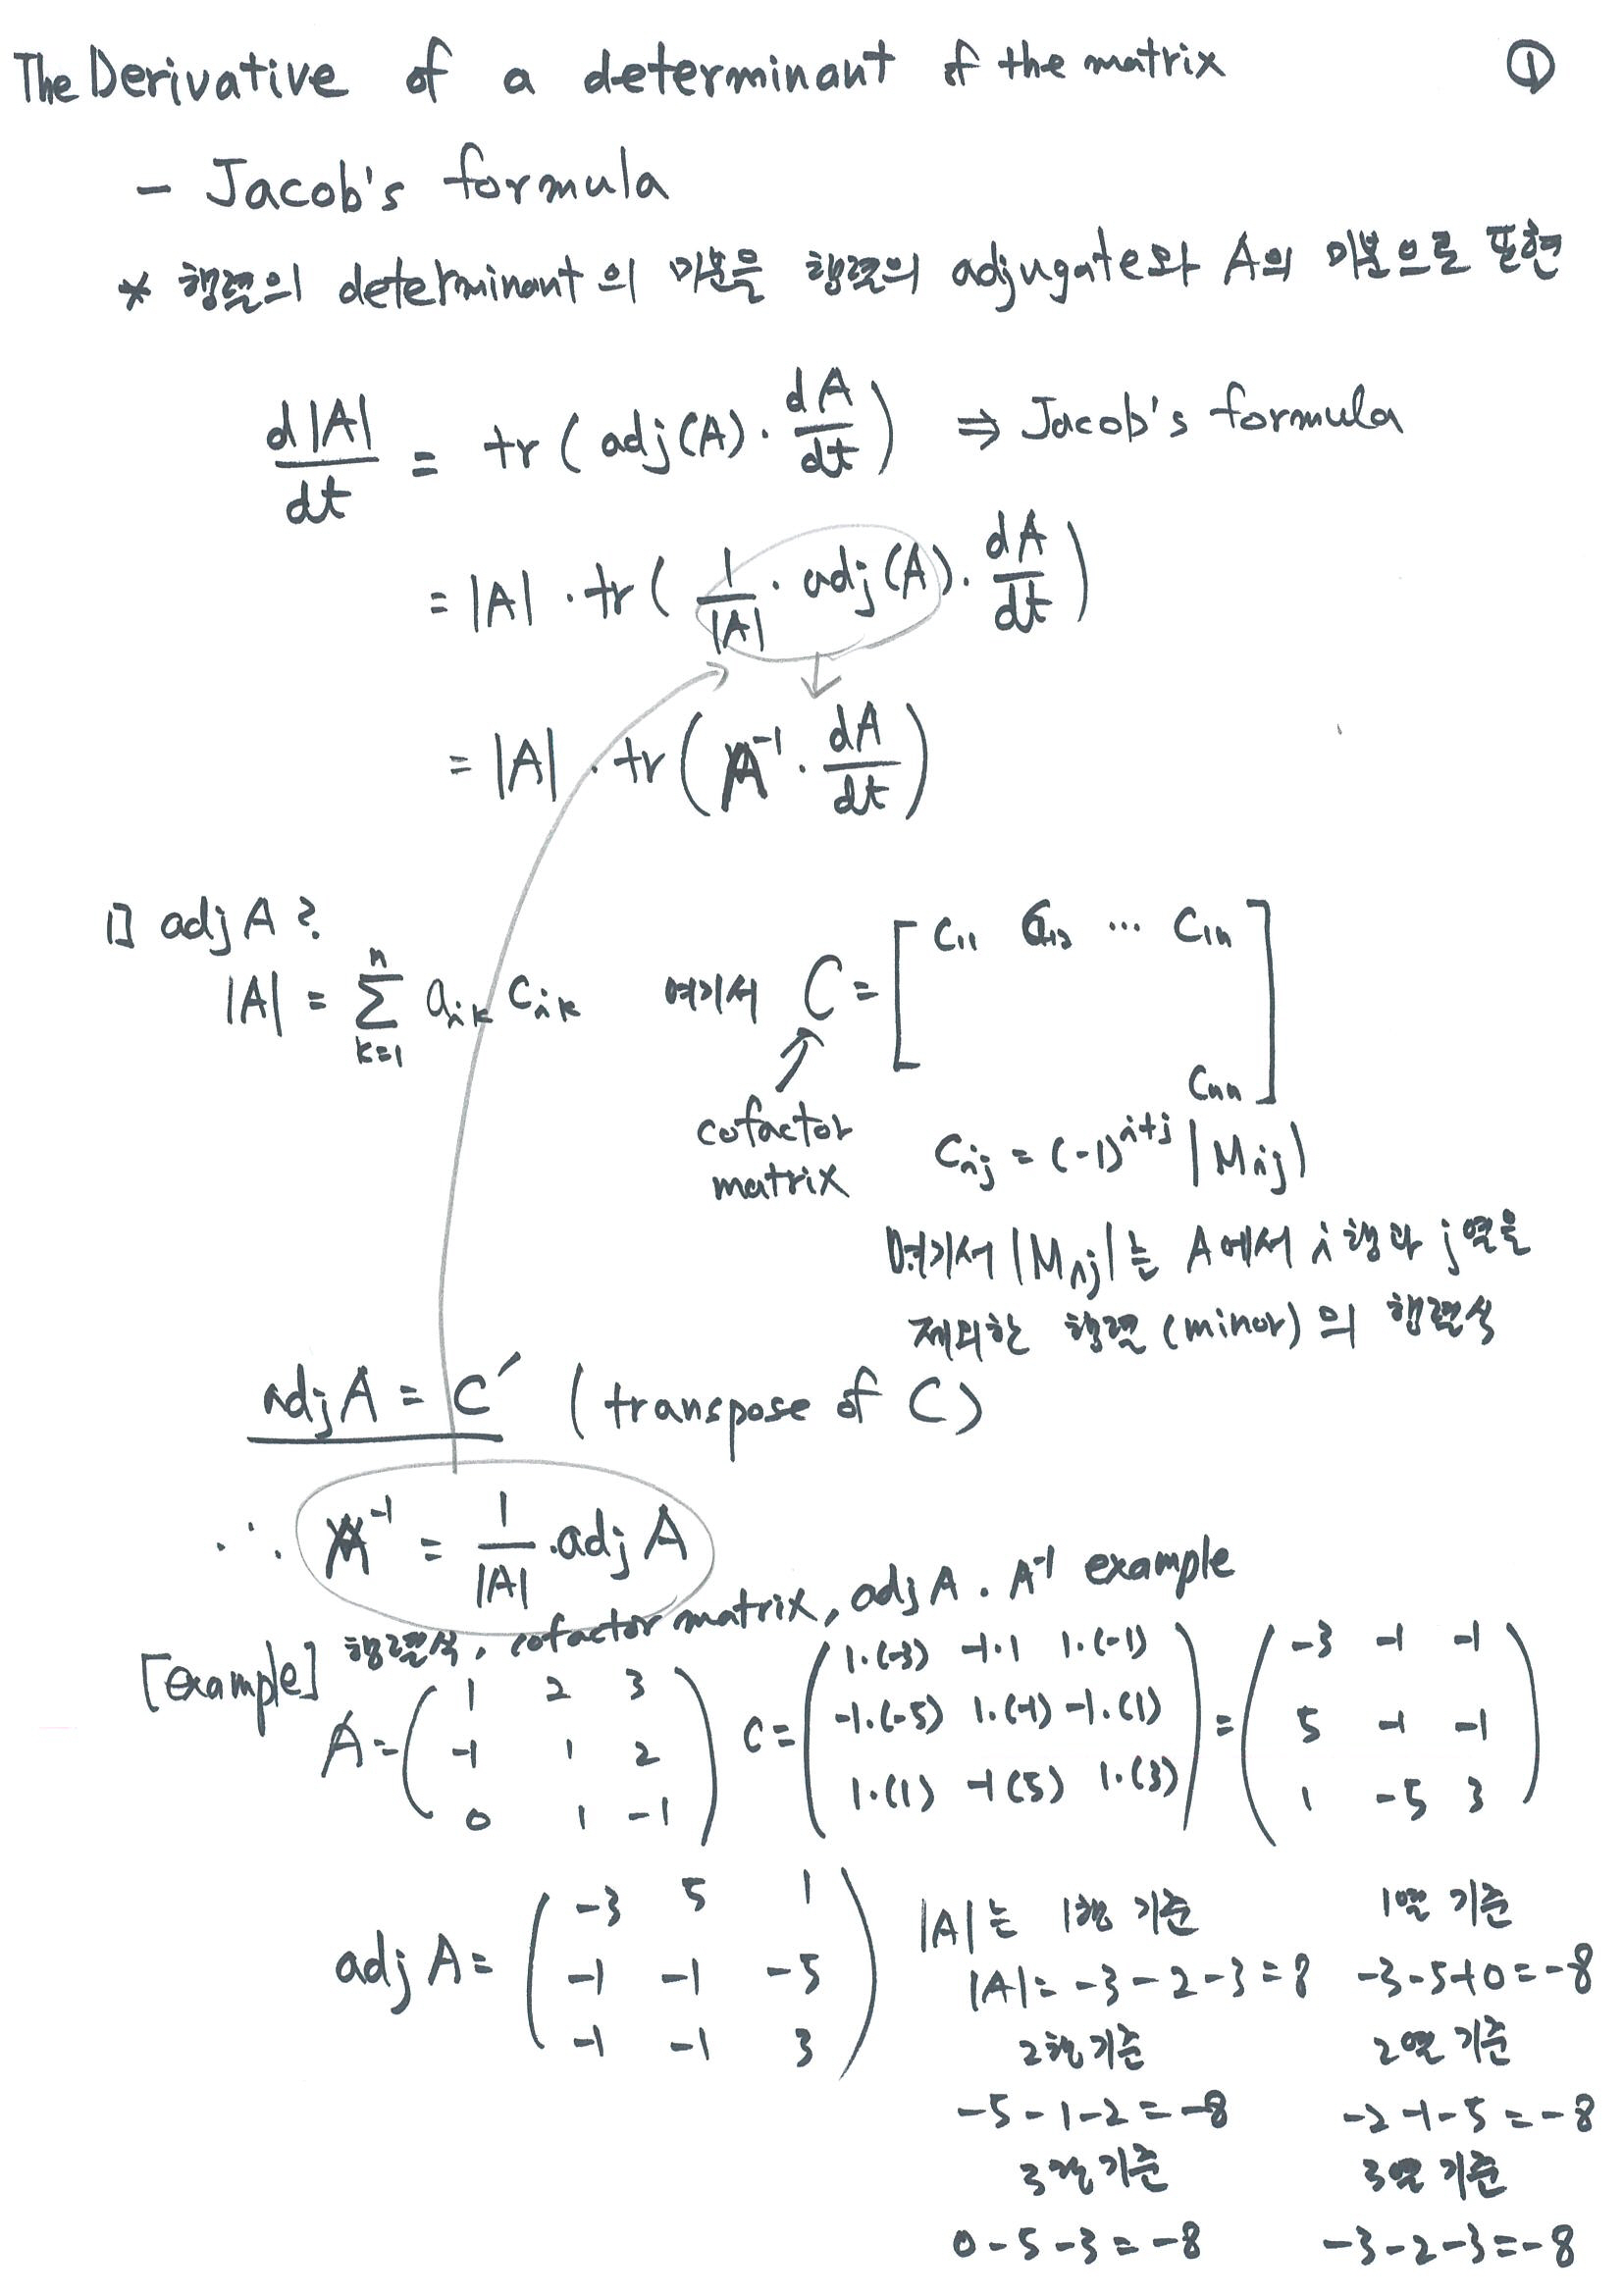 The Derivative of a determinant of the matrix ①
- Jacob's formula
* 행렬의 determinant의 미분을 행렬의 adjugate와 A의 미분으로 표현
d|A|/dt = tr ( adj(A) · dA/dt ) ⇒ Jacob's formula
= |A| · tr ( 1/|A| · adj(A) · dA/dt )
= |A| · tr ( A⁻¹ · dA/dt )
adj A ?
|A| = Σ_{k=1}^{n} a_{ik} c_{ik} 여기서 C = [ C₁₁ C₁₂ ⋯ C₁ₙ
Cₙₙ ]
cofactor
matrix
C_{ij} = (-1)^{i+j} |M_{ij}|
여기서 |M_{ij}|는 A에서 i행과 j열을
제외한 행렬 (minor)의 행렬식
adj A = C′ (transpose of C)
∴ A⁻¹ = 1/|A| · adj A
[Example] 행렬식, cofactor matrix, adj A. A⁻¹ example
A = ( 1 2 3
-1 1 2
0 1 -1 )
C = ( 1·(-3) -1·1 1·(-1)
-1·(-5) 1·(-1) -1·(1)
1·(1) -1(5) 1·(3) )
= ( -3 -1 -1
5 -1 -1
1 -5 3 )
adj A = ( -3 5 1
-1 -1 -5
-1 -1 3 )
|A|는 1행 기준
|A| = -3 - 2 - 3 = 8
2행 기준
-5 - 1 - 2 = -8
3행 기준
0 - 5 - 3 = -8
1열 기준
-3 - 5 + 0 = -8
2열 기준
-2 -1 - 5 = -8
3열 기준
-3 - 2 - 3 = -8